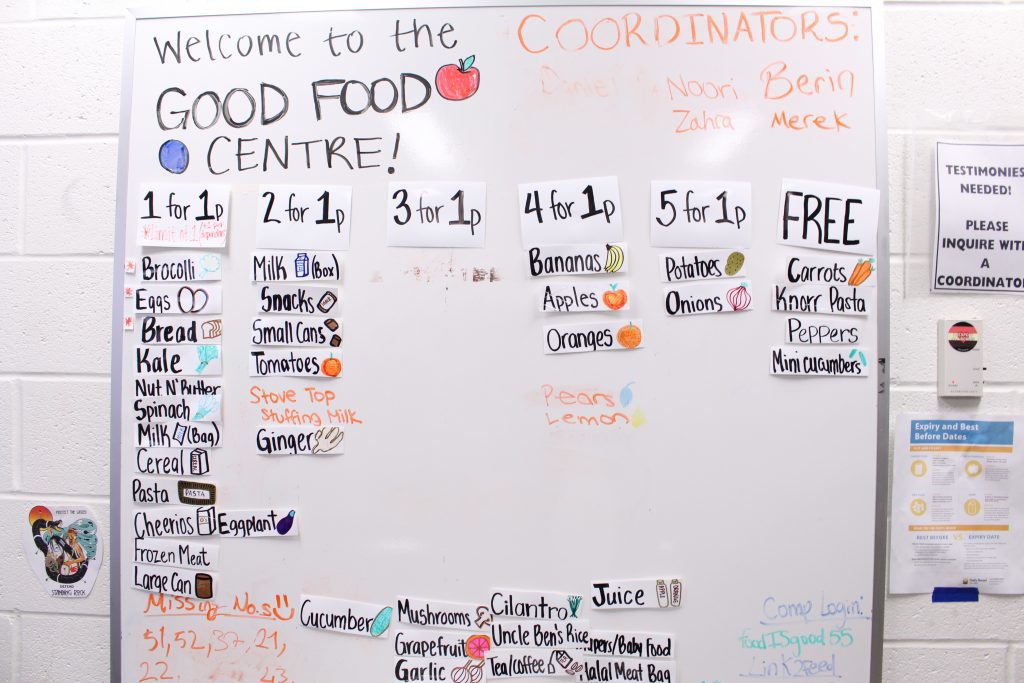 Welcome to the
GOOD FOOD
CENTRE!
COORDINATORS:
Daniel
Noori
Berin
Zahra
Merek
1 for 1p
2 for 1p
3 for 1p
4 for 1p
5 for 1p
FREE
Brocolli
Eggs
Bread
Kale
Nut N' Butter
Spinach
Milk (Bag)
Cereal
Pasta
PASTA
Cheerios
Eggplant
Frozen Meat
Large Can
Milk (Box)
Snacks
Small Cans
Tomatoes
Stove Top
Stuffing Milk
Ginger
Bananas
Apples
Oranges
Pears
Lemon
Potatoes
Onions
Carrots
Knorr Pasta
Peppers
Mini cucumbers
Missing No.s
51, 52, 37, 21,
22. 43.
Cucumber
Mushrooms
Grapefruit
Garlic
Cilantro
Uncle Ben's Rice
Tea/coffee
Juice
pers/Baby Food
Halal Meat Bag
Comp Login:
foodISgood55
Link2Feed
TESTIMONIES
NEEDED!
PLEASE
INQUIRE WITH
A
COORDINATO
Expiry and Best
Before Dates
BEST BEFORE VS. EXPIRY DATE
PROTECT THE SACRED
DEFEND
STANDING ROCK